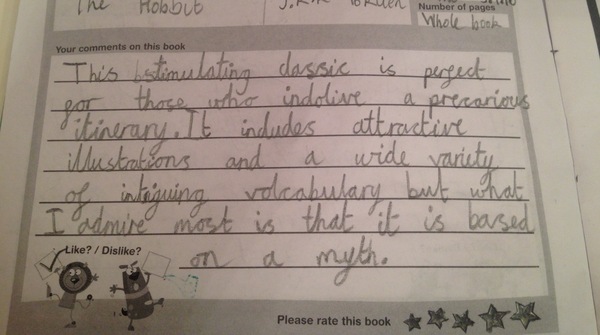 The Hobbit J.R.R Tolkien Number of pages
Whole book
Your comments on this book
This stimulating classic is perfect
for those who indolive a precarious
itinerary. It includes attractive
illustrations and a wide variety
of intriguing volcabulary but what
I admire most is that it is based
on a myth.
Like? / Dislike?
Please rate this book